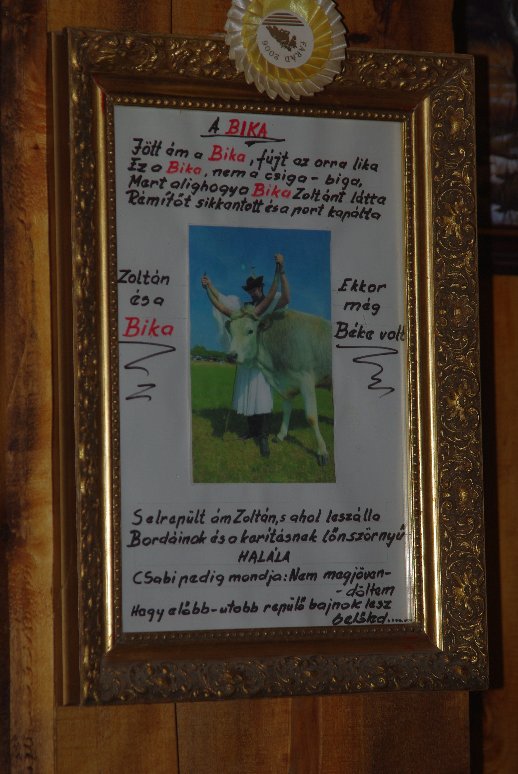 FARAD 2005
A BIKA
Jött ám a Bika, fújt az orra lika
Ez a Bika, nem a csiga-biga,
Mert alighogya Bika Zoltánt látta
Rémítőt sikkantott és a port kapálta
Zoltán
és a
Bika
Ekkor
még
Béke volt
S elrepült ám Zoltán, s ahol leszálla
Bordáinok és a karításnak lőn szörnyű
HALÁLA
CSabi pedig mondja: Nem megjöven-
-döltem
Hogy előbb-utobb repülő bajnok lesz
belőled.....